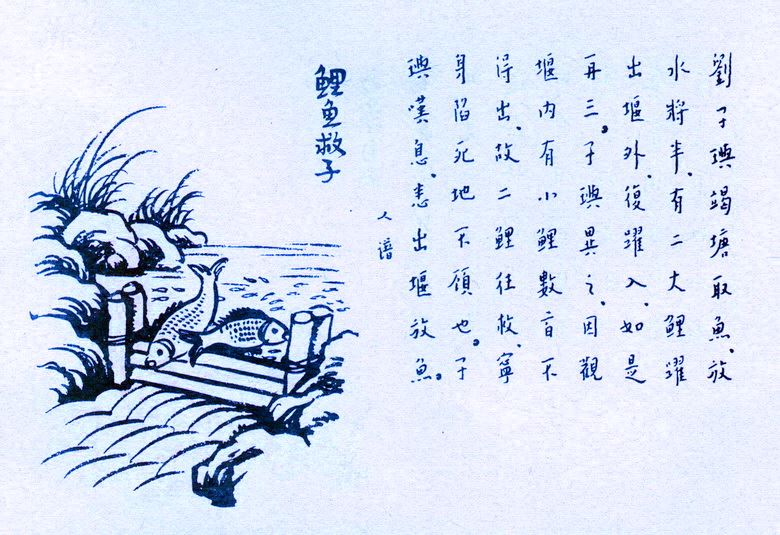 劉子璵竭塘取魚、放
水將半、有二大鯉躍
出堰外、復躍入、如是
再三。子璵異之、因觀
堰內有小鯉數百不
得出、故二鯉往救、寧
身陷死地不顧也。子
璵嘆息、悉出堰放魚。
人譜
鯉魚救子